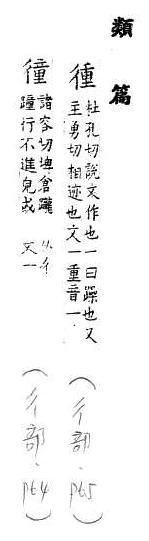 類篇
𢔱 杜孔切說文作也一曰躁也又
主勇切相迹也文一重音一
徸 諸容切埤倉蹱
蹱行不進皃或
从彳 文一
(彳部.pt5)
(彳部.pt4)